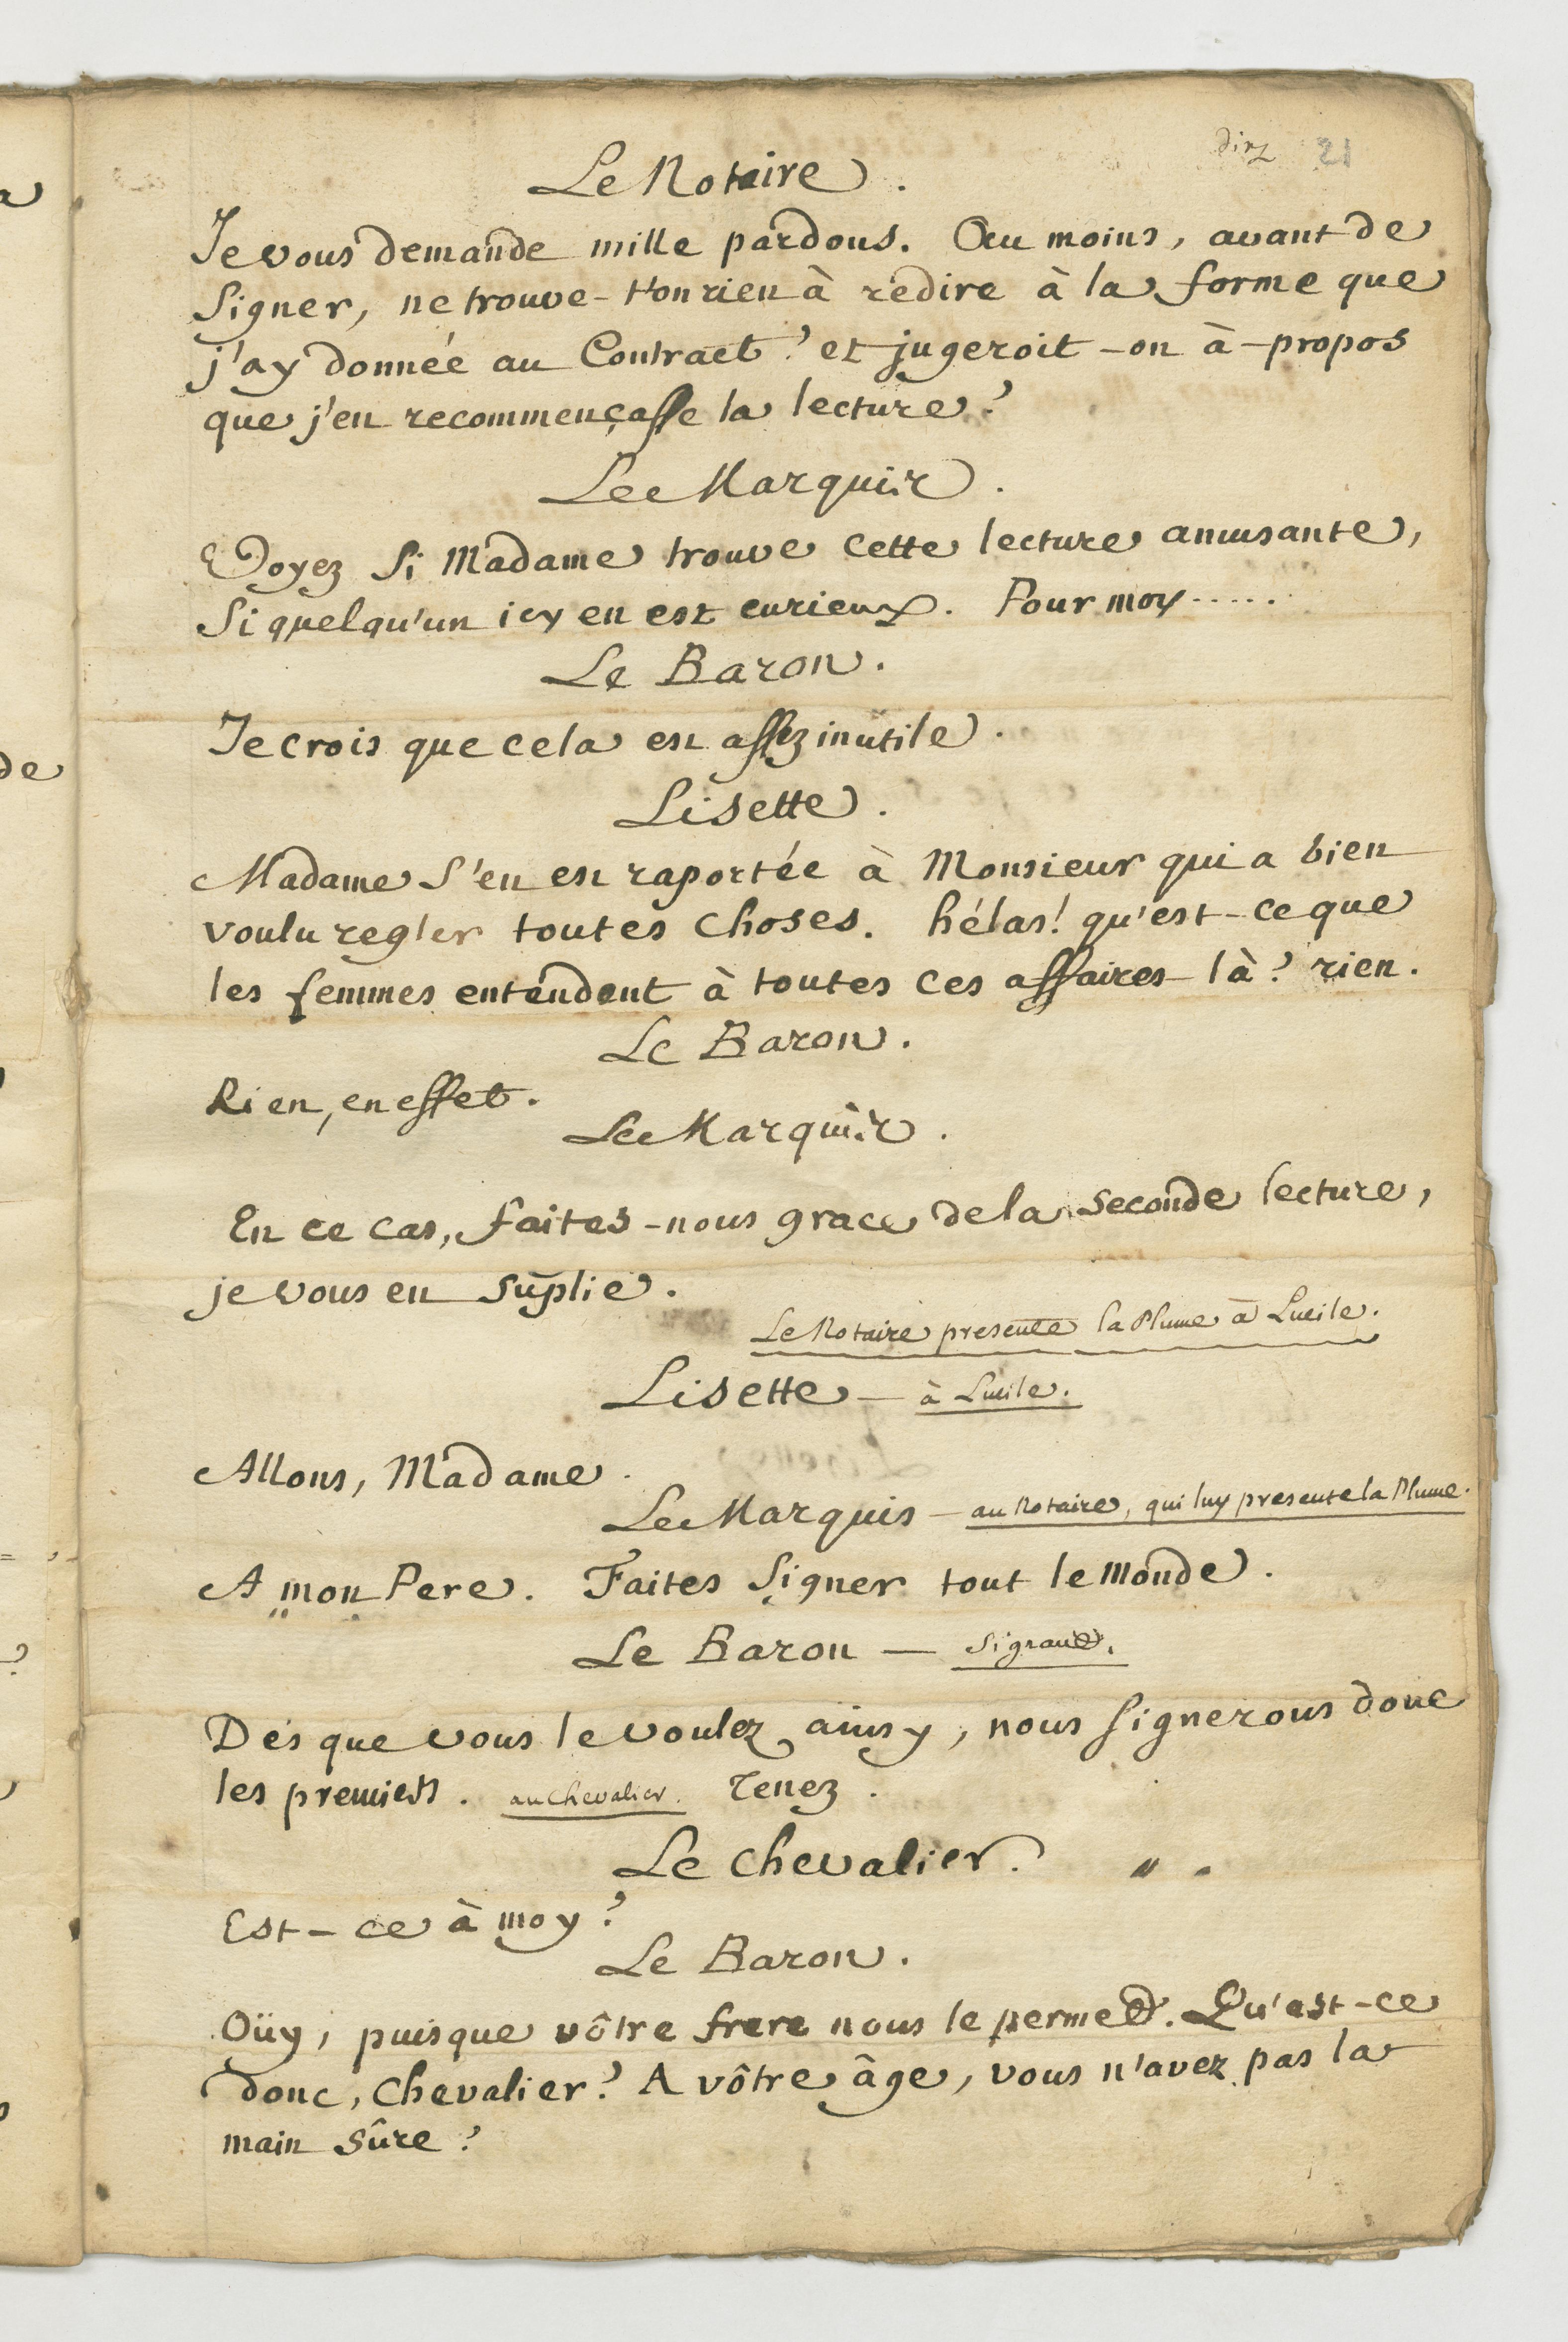 21
Le Notaire.
Je vous demande mille pardons. Au moins, avant de
signer, ne trouve-t'on rien à redire à la forme que
j'ay donnée au Contract? et jugeroit-on à-propos
que j'en recommençasse la lecture?
Le Marquis.
Voyez si Madame trouve cette lecture amusante,
si quelqu'un icy en est curieux. Pour moy.....
Le Baron.
Je crois que cela est assez inutile.
Lisette.
Madame s'en est raportée à Monsieur qui a bien
voulu regler toutes choses. hélas! qu'est-ce que
les femmes entendent à toutes ces affaires-là? rien.
Le Baron.
Rien, en effet.
Le Marquis.
En ce cas, faites-nous grace de la seconde lecture,
je vous en suplie.
Le Notaire presente la Plume à Lucile.
Lisette — à Lucile.
Allons, Madame.
Le Marquis — au Notaire, qui luy presente la Plume.
A mon Pere. Faites signer tout le monde.
Le Baron — signant.
Dés que vous le voulez ainsy, nous signerons donc
les premiers. au Chevalier. Tenez.
Le Chevalier.
Est-ce à moy?
Le Baron.
Oüy, puisque vôtre frere nous le permet. Qu'est-ce
donc, Chevalier? A vôtre âge, vous n'avez pas la
main sûre?